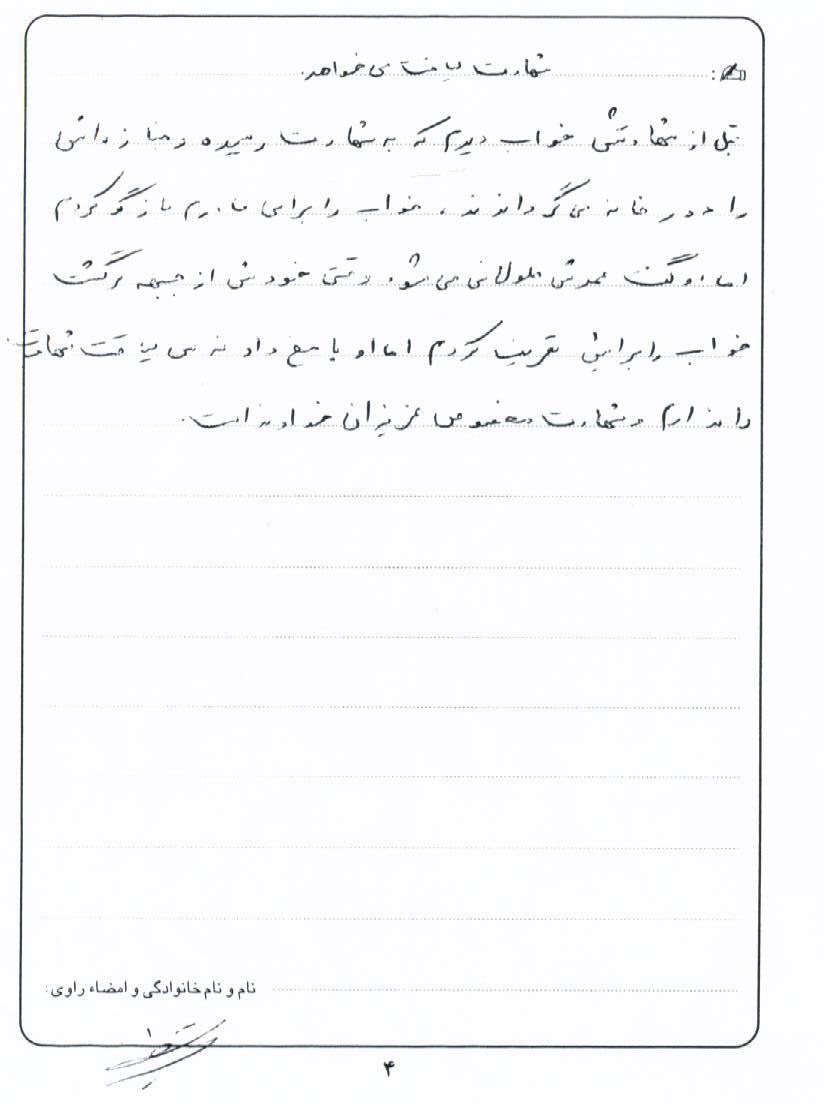 شهادت لیاقت می خواهد.
قبل از شهادتش خواب دیدم که به شهادت رسیده و جنازه اش
را دور خانه می گردانند، خواب را برای مادرم بازگو کردم
اما او گفت عمرش طولانی می شود. وقتی خودش از جبهه برگشت
خواب را برایش تعریف کردم اما او پاسخ داد نه من لیاقت شهادت
را ندارم و شهادت مخصوص عزیزان خداوند است.
نام و نام خانوادگی و امضاء راوی:
۴